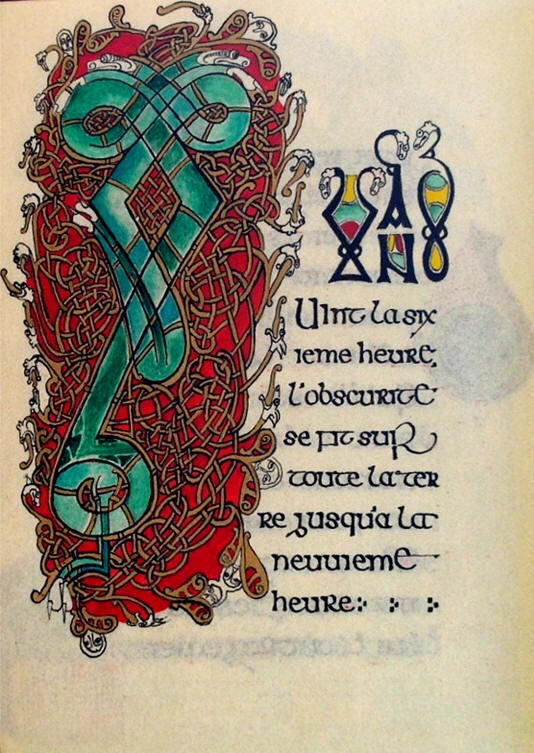 QUAND
Uint la six
ieme heure,
l'obscurite
se fit sur
toute la ter
re jusqu'a la
neuuieme
heure